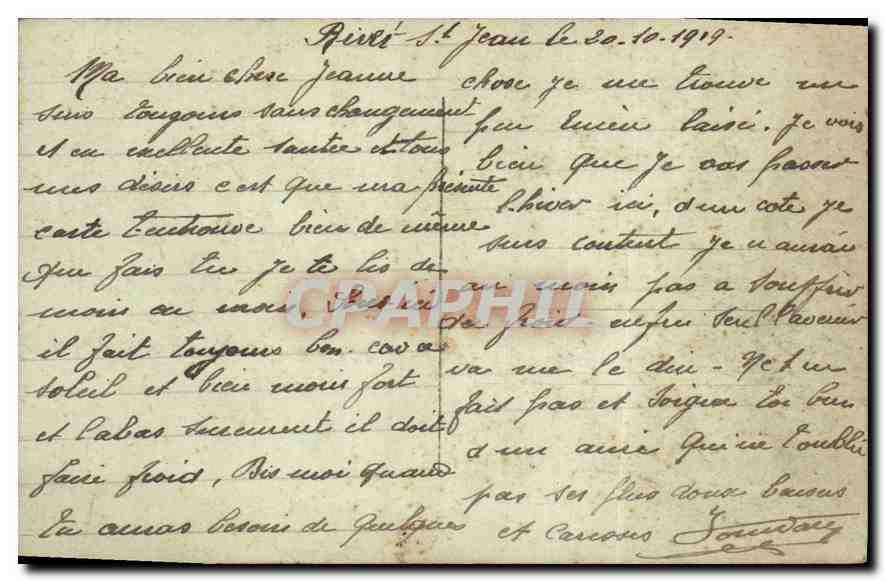 Rivet St Jean le 20-10-1919.
Ma bien chere Jeanne
suis toujours sans changement
et en exellente santée et tous
mes désirs c est que ma présente
carte t-entrouve bien de même
que fais tu je te lis de
moin en moin, Ici
il fait toujours bon. cava
soleil et bien moin fort
et labas surement il doit
faire froid, Dis moi quand
tu auras besoin de quelques
chose je me trouve un
peu bien laisé. Je vois
bien que Je vas passer
lhiver ici, d un coté je
suis content je n aurai
au moin pas a souffrir
de froid enfin seul lavenir
va me le dire - Net en
fait pas et soigne toi bien
d un amie qui ne toublie
pas ses plus doux baisers
et caresses Jourdan
CPAPHIL